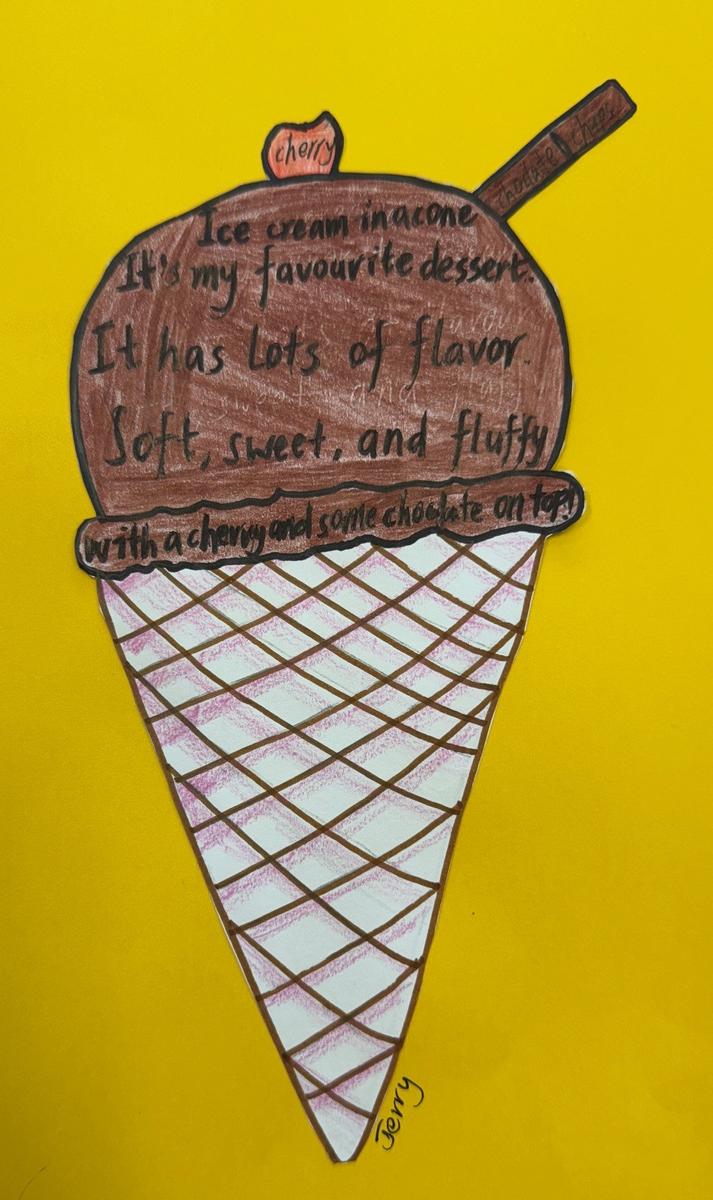 cherry
chocolate chips
Ice cream in a cone
It's my favourite dessert.
It has lots of flavor.
Soft, sweet, and fluffy
with a cherry and some choclate on top!
Jerry